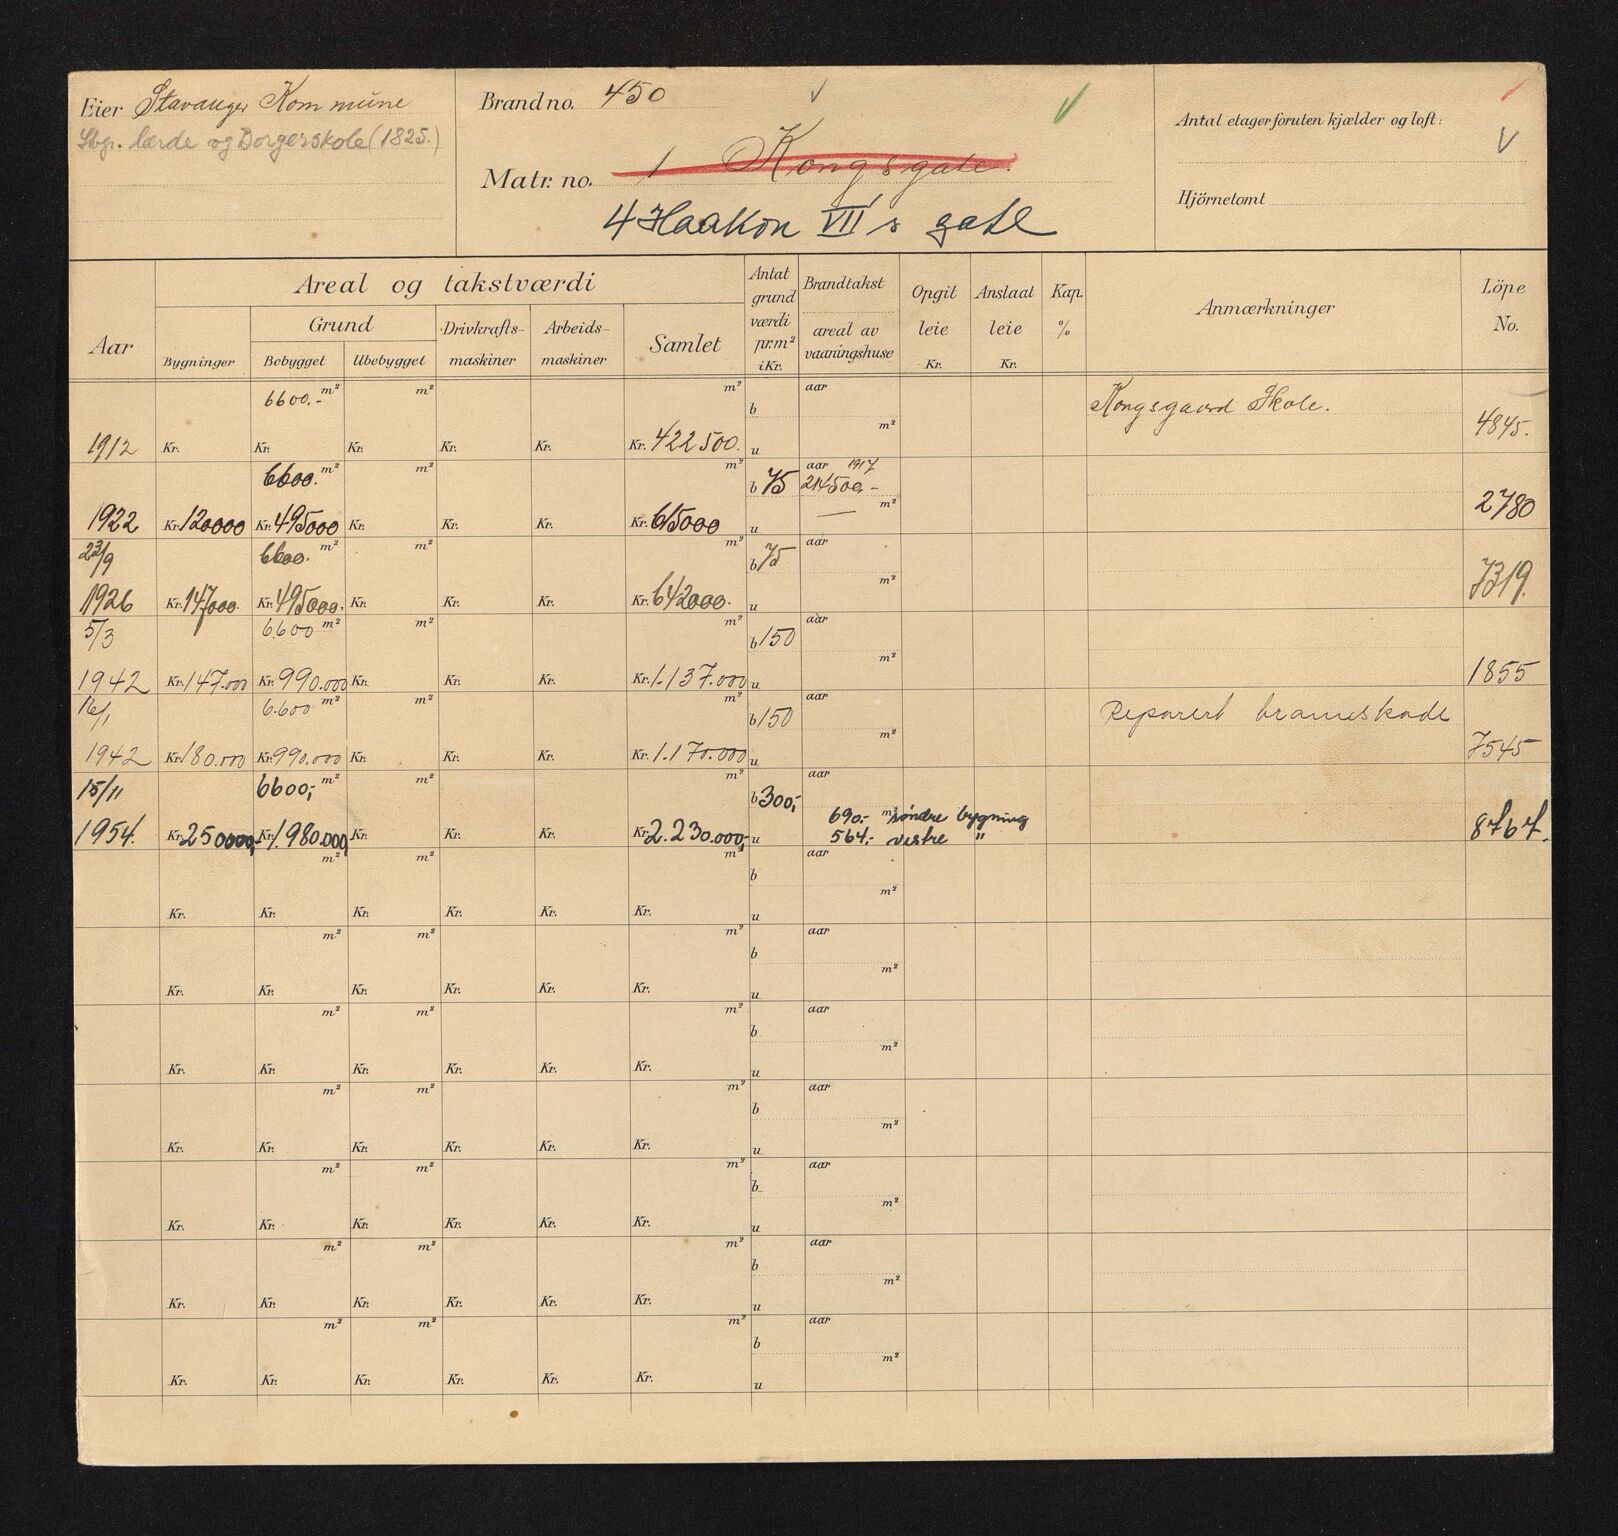 Eier Stavanger Kommune
Sbgr. lærde og Borgerskole (1825.)
Brand no. 450
Matr. no. 1 Kongsgate.
4 Haakon VII's gate
Antal etager foruten kjælder og loft:
Hjörnetomt
Aar
Areal og takstværdi
Bygninger
Grund
Bebygget
Ubebygget
Drivkrafts-
maskiner
Arbeids-
maskiner
Samlet
Antat
grund
værdi
pr.m²
i Kr.
Brandtakst
areal av
vaaningshuse
Opgit
leie
Kr.
Anslaat
leie
Kr.
Kap.
%
Anmærkninger
Löpe
No.
6600.- m² m² m² aar Kongsgaard Skole.
b
m²
1912 Kr. Kr. Kr. Kr. Kr. Kr. 422500. u 4845.
6600. m² m² m² b 75 aar 1917
214500,-
m²
1922 Kr. 120000 Kr. 495000 Kr. Kr. Kr. Kr. 615000 u 2780
23/9 6600. m² m² m² b 75 aar
m²
1926 Kr. 147000. Kr. 495000. Kr. Kr. Kr. Kr. 642000. u 7319.
5/3 6.600 m² m² m² b 150 aar
m²
1942 Kr. 147.000 Kr. 990.000 Kr. Kr. Kr. Kr. 1.137.000 u 1855
16/1 6.600 m² m² m² b 150 aar Reparert branneskade
m²
1942 Kr. 180.000 Kr. 990.000 Kr. Kr. Kr. Kr. 1.170.000 u 7545
15/11 6600,- m² m² m² b 300,- aar
690.- m² søndre bygning
1954. Kr. 250000,- Kr. 1.980.000, Kr. Kr. Kr. Kr. 2.230.000,- u 564.- vestre " 8767.
m² m² m² aar
b
m²
Kr. Kr. Kr. Kr. Kr. Kr. u
m² m² m² aar
b
m²
Kr. Kr. Kr. Kr. Kr. Kr. u
m² m² m² aar
b
m²
Kr. Kr. Kr. Kr. Kr. Kr. u
m² m² m² aar
b
m²
Kr. Kr. Kr. Kr. Kr. Kr. u
m² m² m² aar
b
m²
Kr. Kr. Kr. Kr. Kr. Kr. u
m² m² m² aar
b
m²
Kr. Kr. Kr. Kr. Kr. Kr. u
m² m² m² aar
b
m²
Kr. Kr. Kr. Kr. Kr. Kr. u